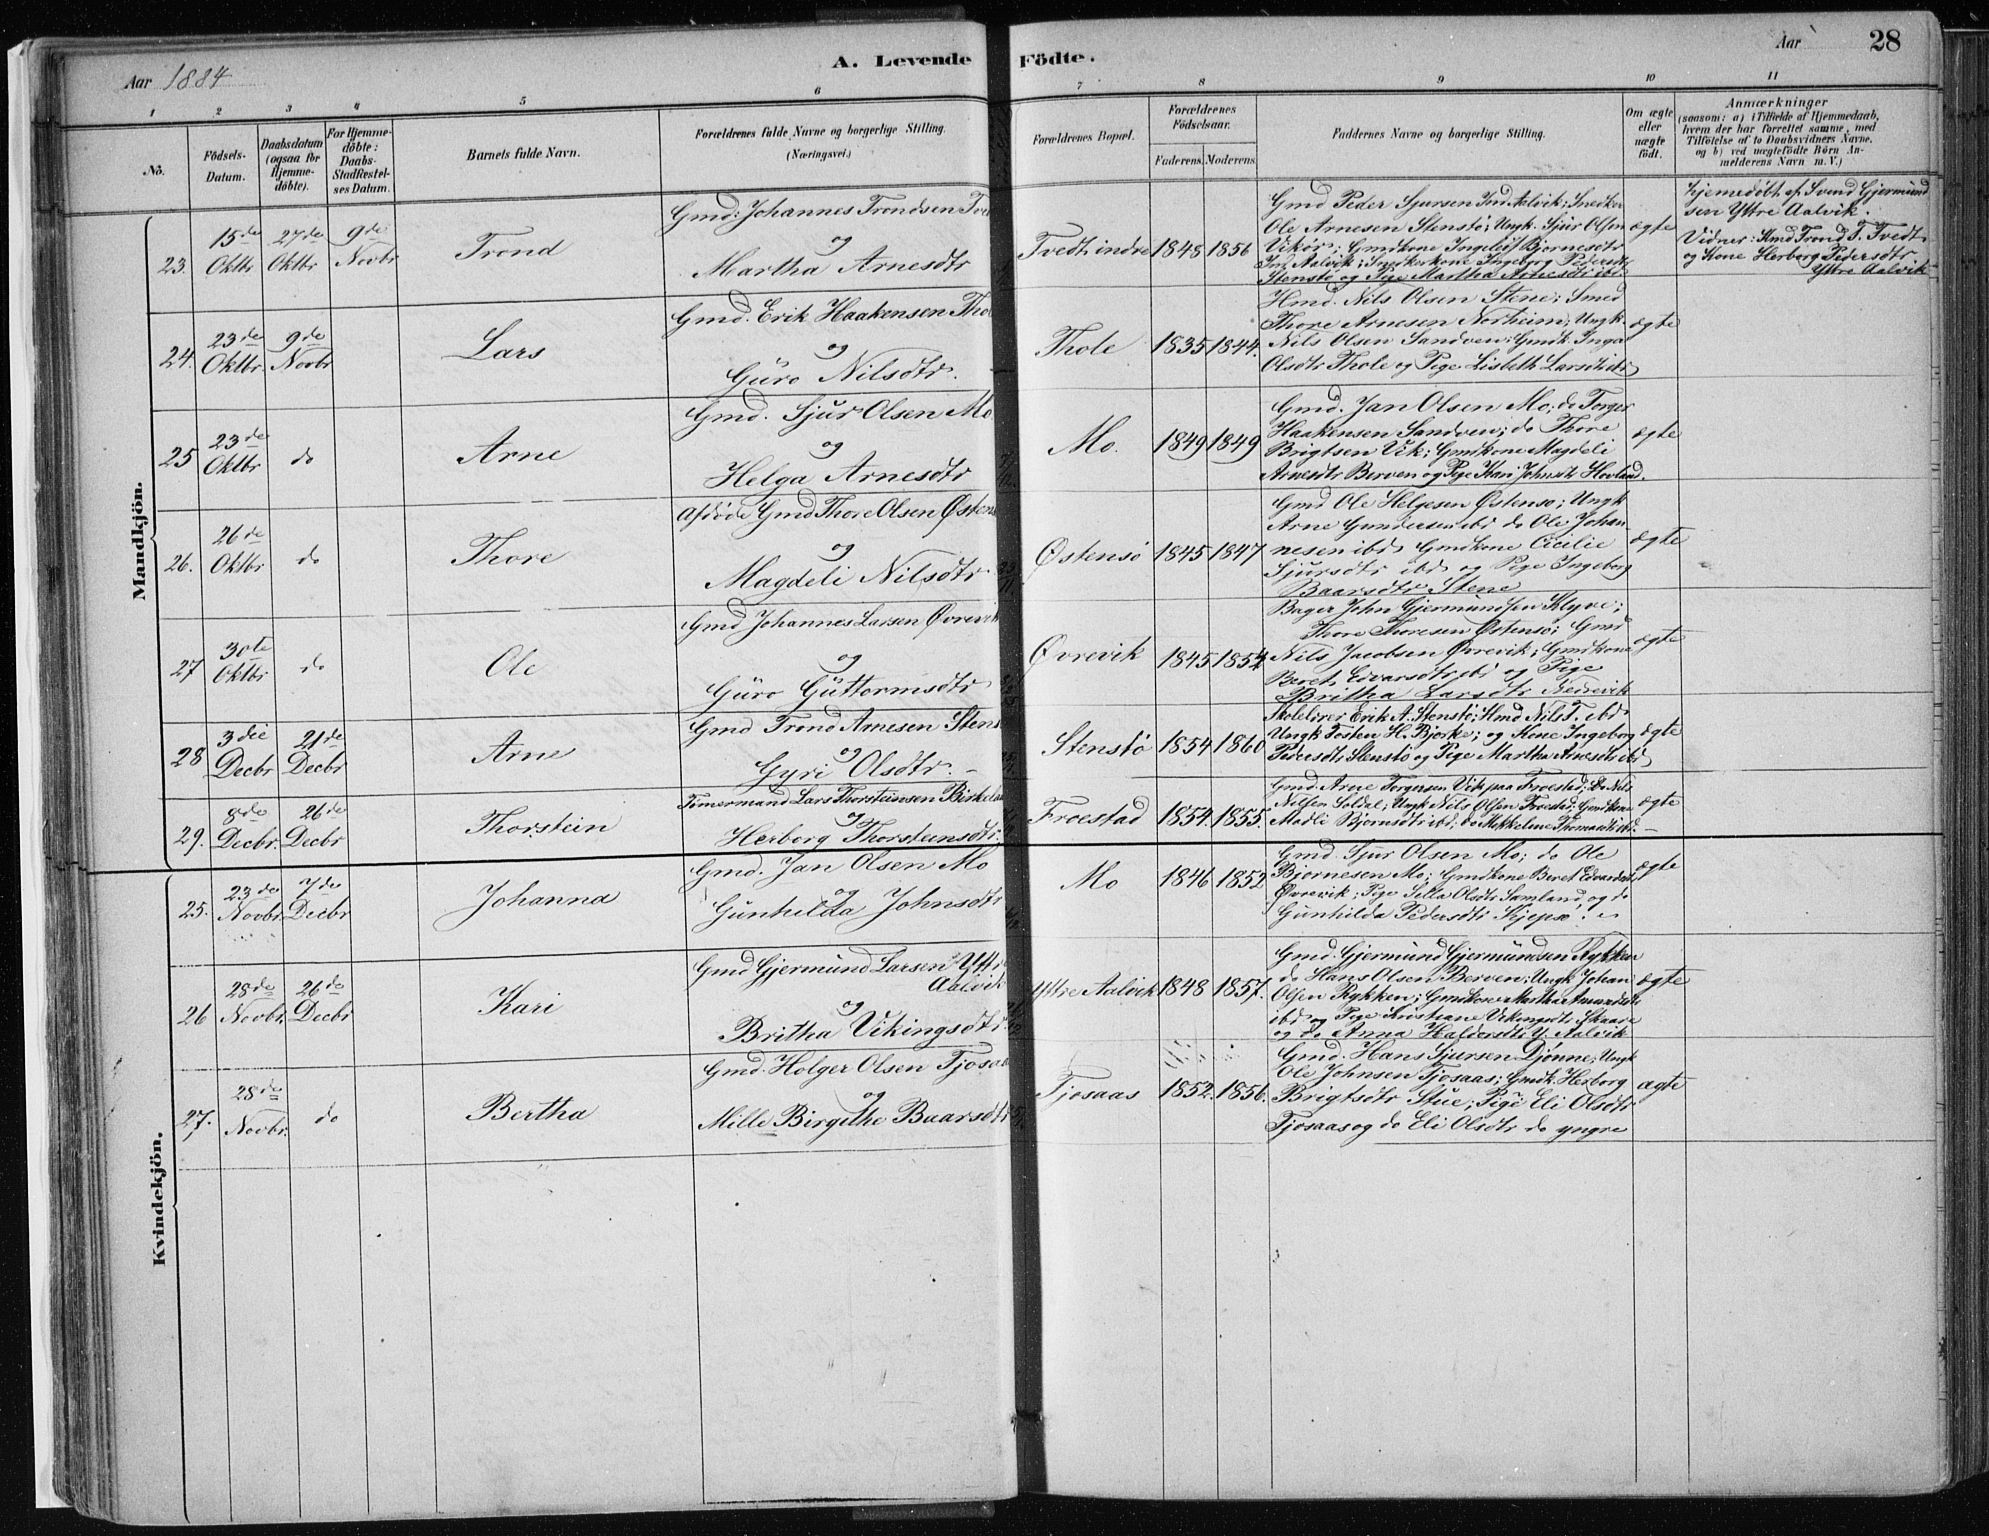 Aar 1884
A. Levende Födte.
Aar
28
1 2 3 4 5 6 7 8 9 10 11
No.
Födsels-
Datum.
Daabsdatum
(ogsaa for
Hjemme-
døbte).
For Hjemme-
døbte:
Daabs-
Stadfæstel-
ses Datum.
Barnets fulde Navn.
Forældrenes fulde Navne og borgerlige Stilling.
(Næringsvei.)
Forældrenes Bopæl.
Forældrenes
Födselsaar.
Faderens. Moderens.
Faddernes Navne og borgerlige Stilling.
Om ægte
eller
uægte
födt.
Anmærkninger
(saasom: a) i Tilfælde af Hjemmedaab,
hvem der har forrettet samme, med
Tilføielse af to Daabsvidners Navne,
og b) ved uægtefødte Börn An-
melderens Navn m. V.)
Mandkjön.
23. 15de Oktbr 27de Oktbr 9de Novbr
Trond
Gmd: Johannes Trondsen Tve
og
Martha Arnesdtr
Tvedt indre 1848 1856
Gmd Peder Sjursen Ind Aalvik; Snedker
Ole Arnesen Stenstø; Ungk. Sjur Olsen
Vikør; Gmdkone Ingeleif Bjørnesdtr
Ind. Aalvik; Snedkerkone Ingeborg Pedersdtr
Stenstø og Pige Martha Arnesdtr ibd.
ægte
hjemedøbt af Svend Gjermund
sen Yttre Aalvik.
Vidner: Hmd Trond T. Tvedt
og Kone Herborg Pedersdtr
Yttre Aalvik
24. 23de Oktbr 9de Novbr
Lars
Gmd. Erik Haakensen Tho
og
Güro Nilsdtr.
Thole 1835 1844.
Hmd. Nils Olsen Stene; Smed
Thore Arnesen Norheim; Ungk.
Nils Olsen Sandven; Gmdk. Inga
Olsdtr Thole og Pige Lisbeth Larsdtr ibd
ægte
25 23de Oktbr do
Arne
Gmd. Sjur Olsen Mo
og
Helga Arnesdtr
Mo. 1849 1849
Gmd. Jan Olsen Mo; do Torger
Haakensen Sandven; do Thore
Brigtsen Vik; Gmdkone Magdeli
Arnesdtr Berven og Pige Kari Johnsdtr Hovland.
ægte
26. 26de Oktbr do
Thore
Afdøde Gmd Thore Olsen Østens
og
Magdeli Nilsdtr
Østensø 1845 1847
Gmd Ole Helgesen Østensø; Ungk
Arne Gundersen ibd do Ole Johan-
nesen ibd, Gmdkone Cicilie
Sjursdtr ibd og Pige Ingeborg
Baarsdtr Stene
ægte
27 30te Oktbr do
Ole
Gmd Johannes Larsen Øvrevik
og
Güro Güttormsdtr
Øvrevik 1845 1854
Bager John Gjermundsen Klyve;
Thore Thoresen Østensø; Gmd
Nils Jacobsen Øvrevik; Gmdkone
Beret Edvarsdtr ibd og Pige
Britha Larsdtr
ægte
28 3die Decbr 21de Decbr
Arne
Gmd Trond Arnesen Stens
og
Gyri Olsdtr.
Stenstø 1854 1860
Skolelærer Erik A. Stenstø; Hmd Nils T. ibd
Ungk Tosten H. Bjørke; og Kone Ingeborg
Pedersdtr Stenstø og Pige Martha Arnesdtr ibd
ægte
29. 8de Decbr. 26de Decbr
Thorstein
Timermand Lars Thorsteinsen Birkela
og
Herborg Thorsteinsdtr
Froestad 1854. 1855.
Gmd. Arne Torgersen Vik paa Froestad; do Nils
Nilsen Soldal; Ungk Nils Olsen Froestad; Gmdkone
Madli Bjørnsdtr ibd; do Mekkeline Thomasdtr ibd.
ægte
Kvindekjön.
25. 23de Novbr 7de Decbr
Johanna
Gmd. Jan Olsen Mo
og
Gunhilda Johnsdtr
Mo 1846 1852
Gmd. Sjur Olsen Mo; do Ole
Bjørnesen Mo; Gmdkone Beret Edvardsdtr
Øvrevik; Pige Silla Olsdtr Samland, og do
Gunhilda Pedersdtr Skjepsø.
ægte
26 28de Novbr. 26de Decbr
Kari
Gmd Gjermund Larsen Yttr
Aalvik
og
Britha Vikingsdtr
Yttre Aalvik 1848 1857.
Gmd. Gjermund Gjermundsen Rykken
do Hans Olsen Berven; Ungk Johan
Olsen Rykken; Gmdkone Martha Amundsdtr
ibd og Pige Kristiane Vikingsdtr Skaare
og do Anna Haldorsdtr Y. Aalvik
ægte
27. 28de Novbr. do
Bertha
Gmd. Holger Olsen Tjosaa
og
Mille Birgithe Baarsdtr
Tjosaas 1852. 1856.
Gmd. Hans Sjursen Djønne; Ungk
Ole Johnsen Tjosaas; Gmdk. Herborg
Brigtsdtr Stue; Pige Eli Olsdtr
Tjosaas og do Eli Olsdtr do yngre
ægte